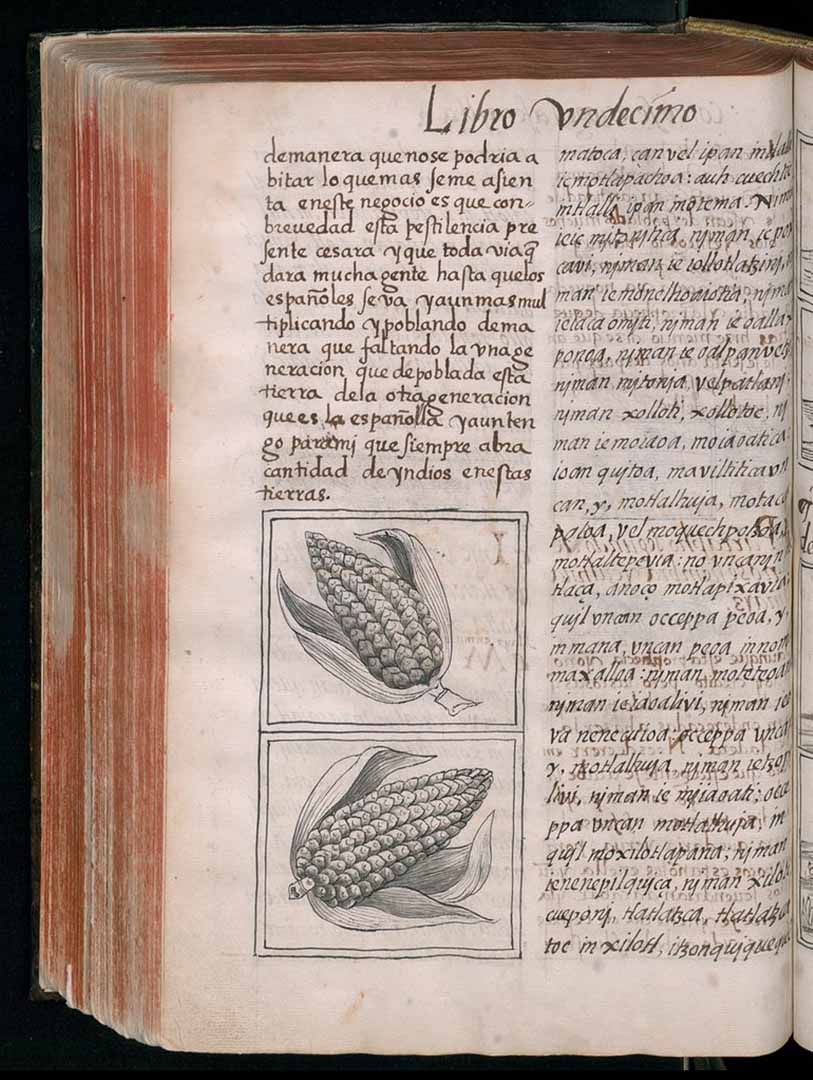 Libro vndecimo
demanera que nose podria a
bitar lo que mas seme asien
ta eneste negocio es que con-
brevedad esta pestilencia pre
sente cesara y que toda via q̃
dara mucha gente hasta quelos
españoles se va yaun mas mul
tiplicando y poblando dema
nera que faltando la vna ge
neracion que depoblada esta
tierra dela otra generacion
que es la española yaun ten
go para mi que siempre abra
cantidad de yndios enestas
tierras.
matoca, can vel ipan
iemotlapachoa: auh
ipan motema.
njman
cavi, njman ie iollotlatzinj,
man
omiti, njman ie oalla
njman ie oalpanvetz
njman mitonja, velpatlanj,
njman xolloti, xollotoc, nj
man iemoiaoa, moiaoatica
ioan quitoa, maviltiticavn
can, y, motlalhuja, motaca
paloa, vel moquechpaloa,
motlaltepevia: no vncan
tlaça, anoço motlapixavia
quijl vncan occeppa peoa, y,
mmana, vncan peoa innom
maxalloa: njman moteteoa
njman ieiaoalivi, njman ie
va nenecutoa: occeppa vnca
y, motlalhuja, njman ietzo
livi, njman ie mjiaoati; occe
ppa vncan motlalhuja, in
quijl moxilotlapana; njman
ienenepilquiça, njman xilo
cueponj, tlatlatzca, tlatlatz
toc in xilotl, itzonquiquequ